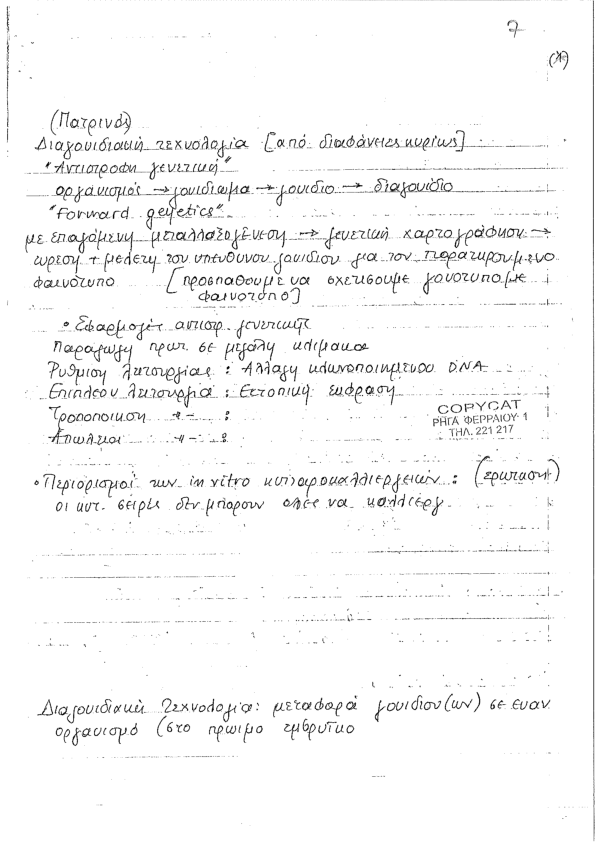 7
(1)
(Πατρινός)
Διαγονιδιακή τεχνολογία [από διαφάνειες κυρίως]
"Αντίστροφη γενετική"
οργανισμός → γονιδίωμα → γονίδιο → διαγονίδιο
"Forward genetics"
με επαγόμενη μεταλλαξογένεση → γενετική χαρτογράφηση →
εύρεση + μελέτη του υπεύθυνου γονιδίου για τον παρατηρούμενο
φαινότυπο [προσπαθούμε να σχετίσουμε γονότυπο με
φαινότυπο]
• Εφαρμογές αντιστρ. γενετικής
Παραγωγή πρωτ. σε μεγάλη κλίμακα
Ρύθμιση λειτουργίας : Αλλαγή κλωνοποιημένου DNA
Επιπλέον λειτουργία : Εκτοπική έκφραση
Τροποποίηση -〃- :
Απώλεια -〃- :
COPYCAT
ΡΗΓΑ ΦΕΡΡΑΙΟΥ 1
ΤΗΛ. 221 217
• Περιορισμοί των in vitro κυτταροκαλλιεργειών : (ερώτηση)
οι κυτ. σειρές δεν μπορούν όλες να καλλιεργ
Διαγονιδιακή Τεχνολογία: μεταφορά γονιδίου(ων) σε έναν
οργανισμό (στο πρώιμο εμβρυϊκό